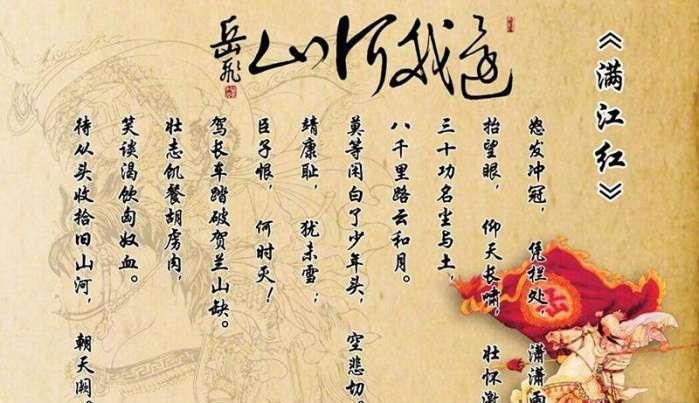 《满江红》
還我河山
岳飛
怒发冲冠，凭栏处，潇潇雨
抬望眼，仰天长啸，壮怀激
三十功名尘与土，
八千里路云和月。
莫等闲白了少年头，空悲切。
靖康耻，犹未雪；
臣子恨，何时灭！
驾长车踏破贺兰山缺。
壮志饥餐胡虏肉，
笑谈渴饮匈奴血。
待从头收拾旧山河，朝天阙。
岳